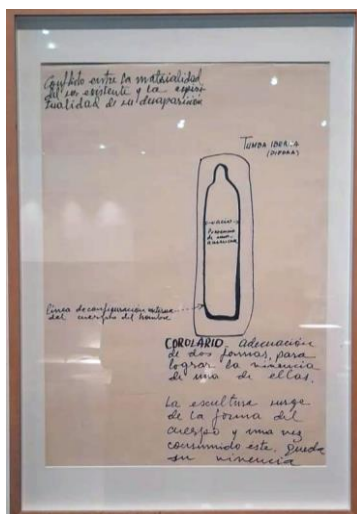 Conflicto entre la materialidad
del ser existente y la espiri-
tualidad de su desaparición
TUMBA IBERICA
(PIEDRA)
VACIO
Presencia
de una
ausencia
Linea de configuración externa
del cuerpo del hombre
COROLARIO. adecuación
de dos formas, para
lograr la vivencia
de una de ellas.
La escultura surge
de la forma del
cuerpo y una vez
consumido este, queda
su vivencia